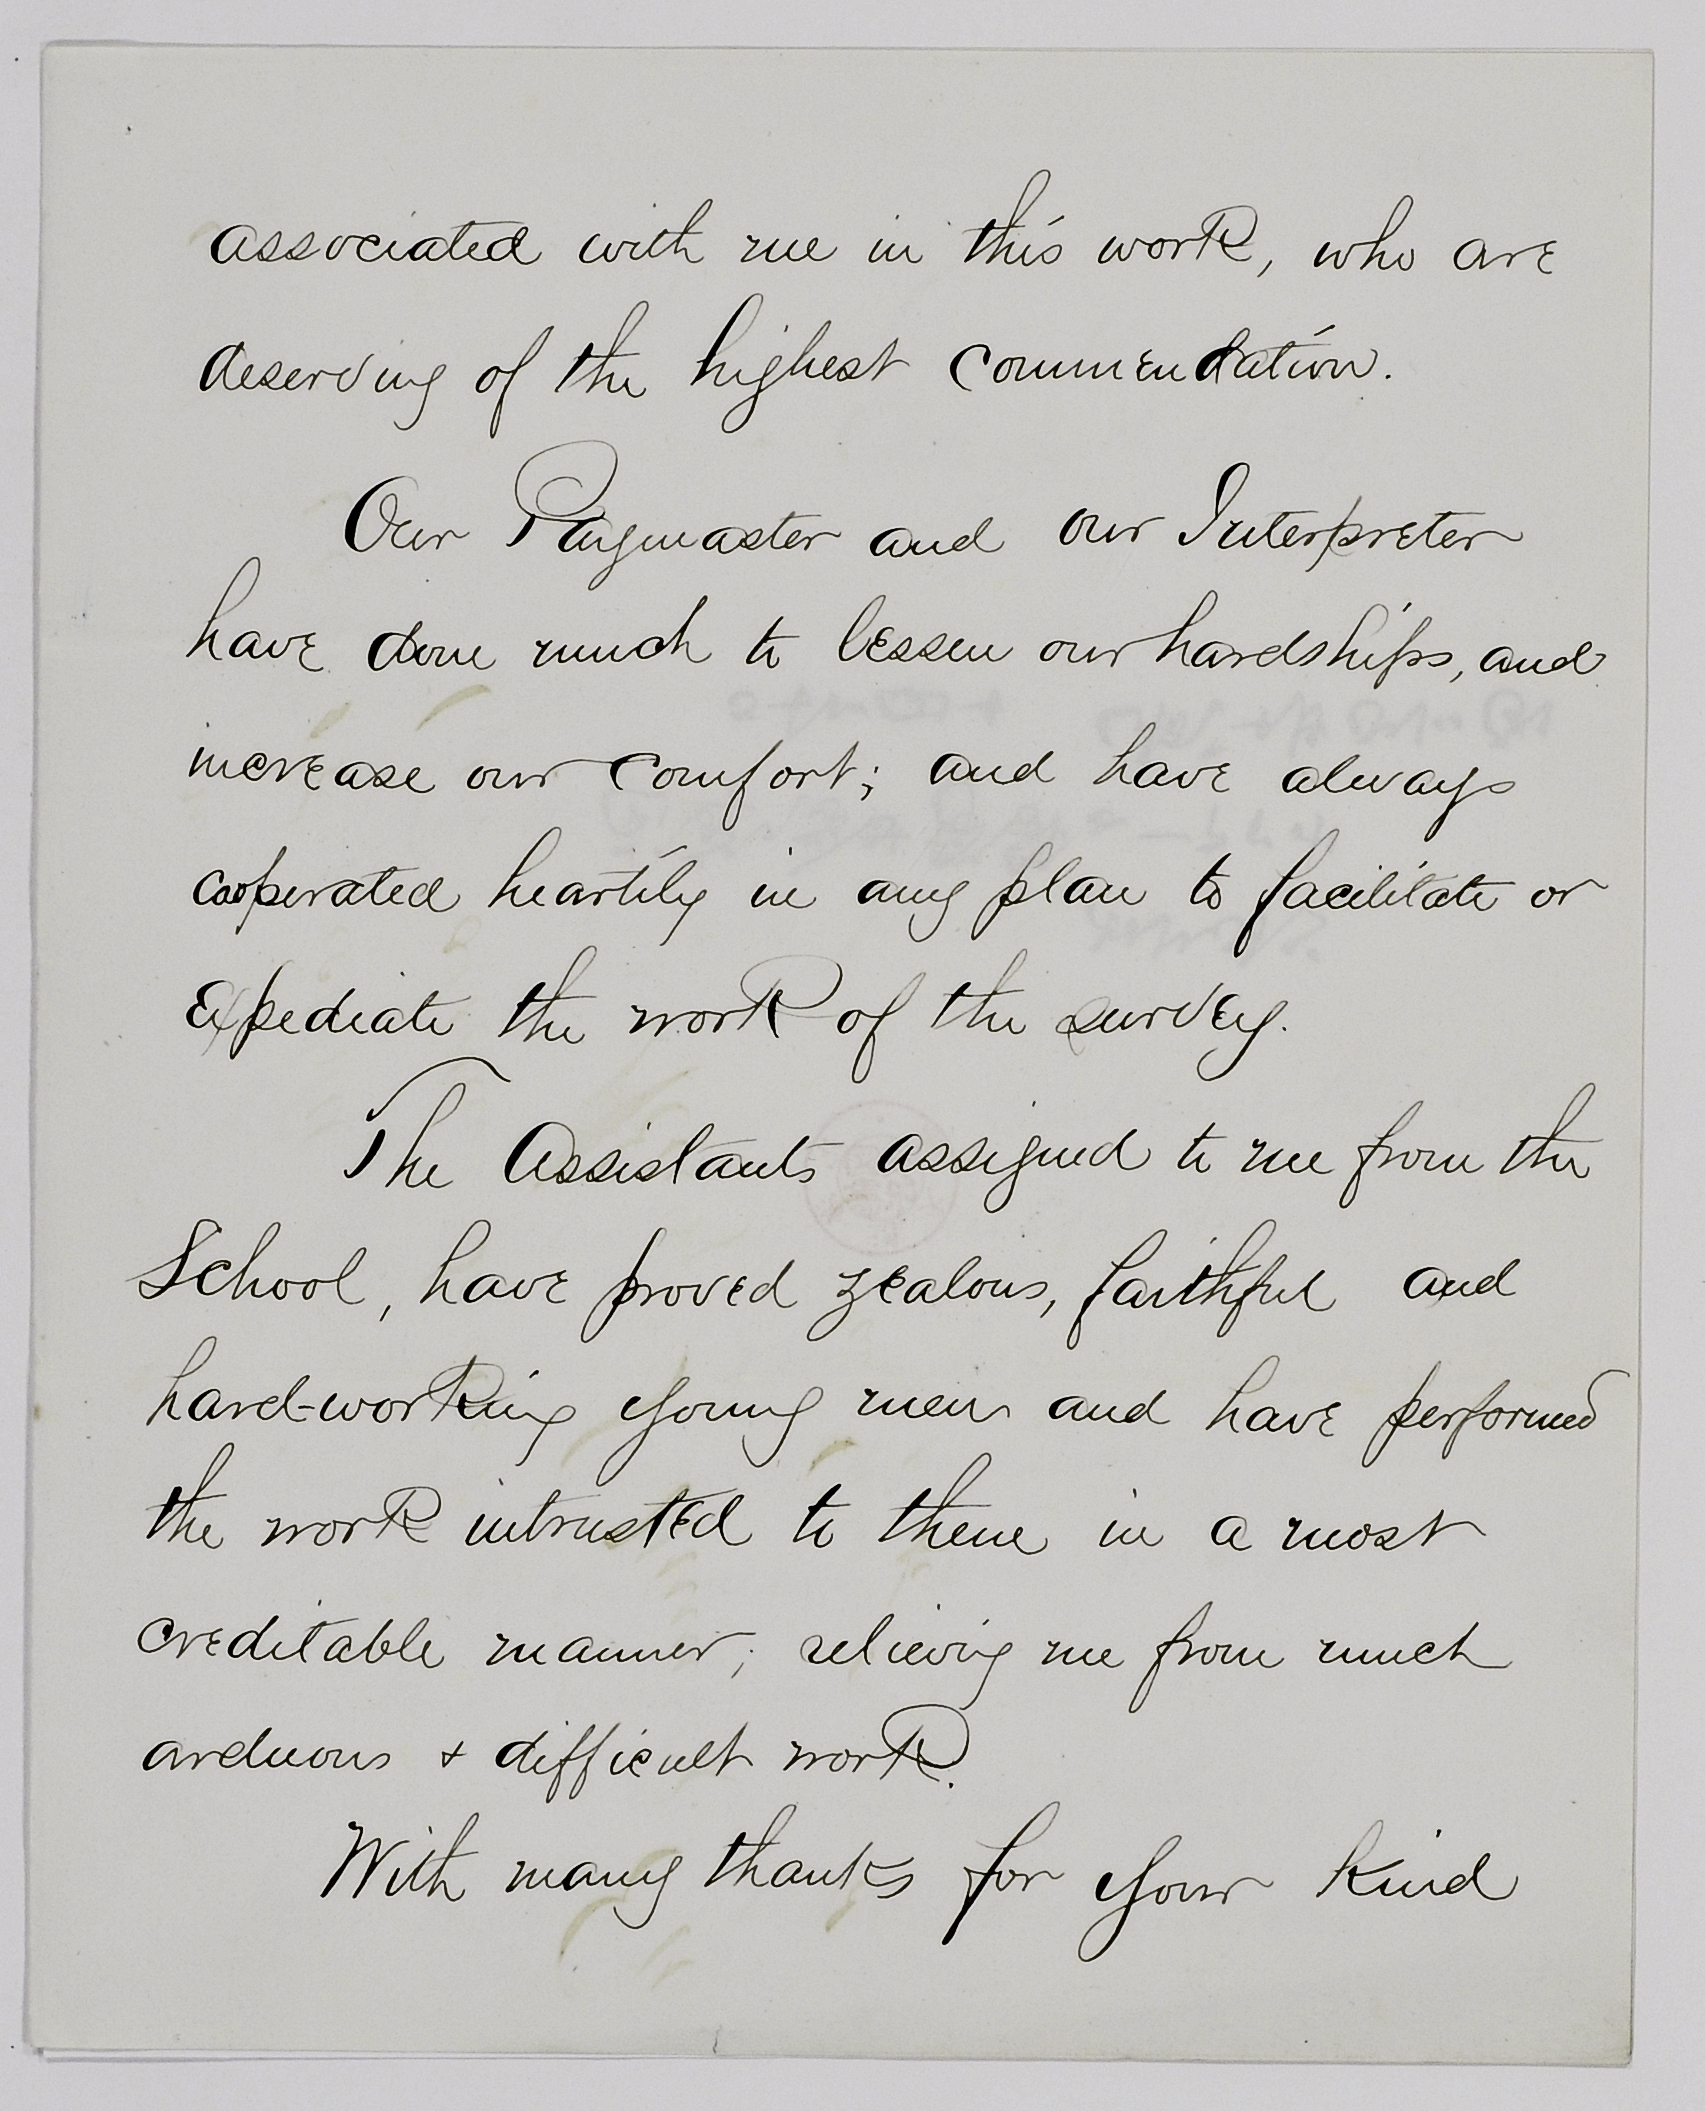 associated with me in this work, who are
deserving of the highest commendation.
Our Paymaster and our Interpreter
have done much to lessen our hardships, and
increase our comfort; and have always
cooperated heartily in any plan to facilitate or
expediate the work of the survey.
The Assistants assigned to me from the
School, have proved zealous, faithful and
hard-working young men and have performed
the work intrusted to them in a most
creditable manner; relieving me from much
arduous & difficult work.
With many thanks for your kind